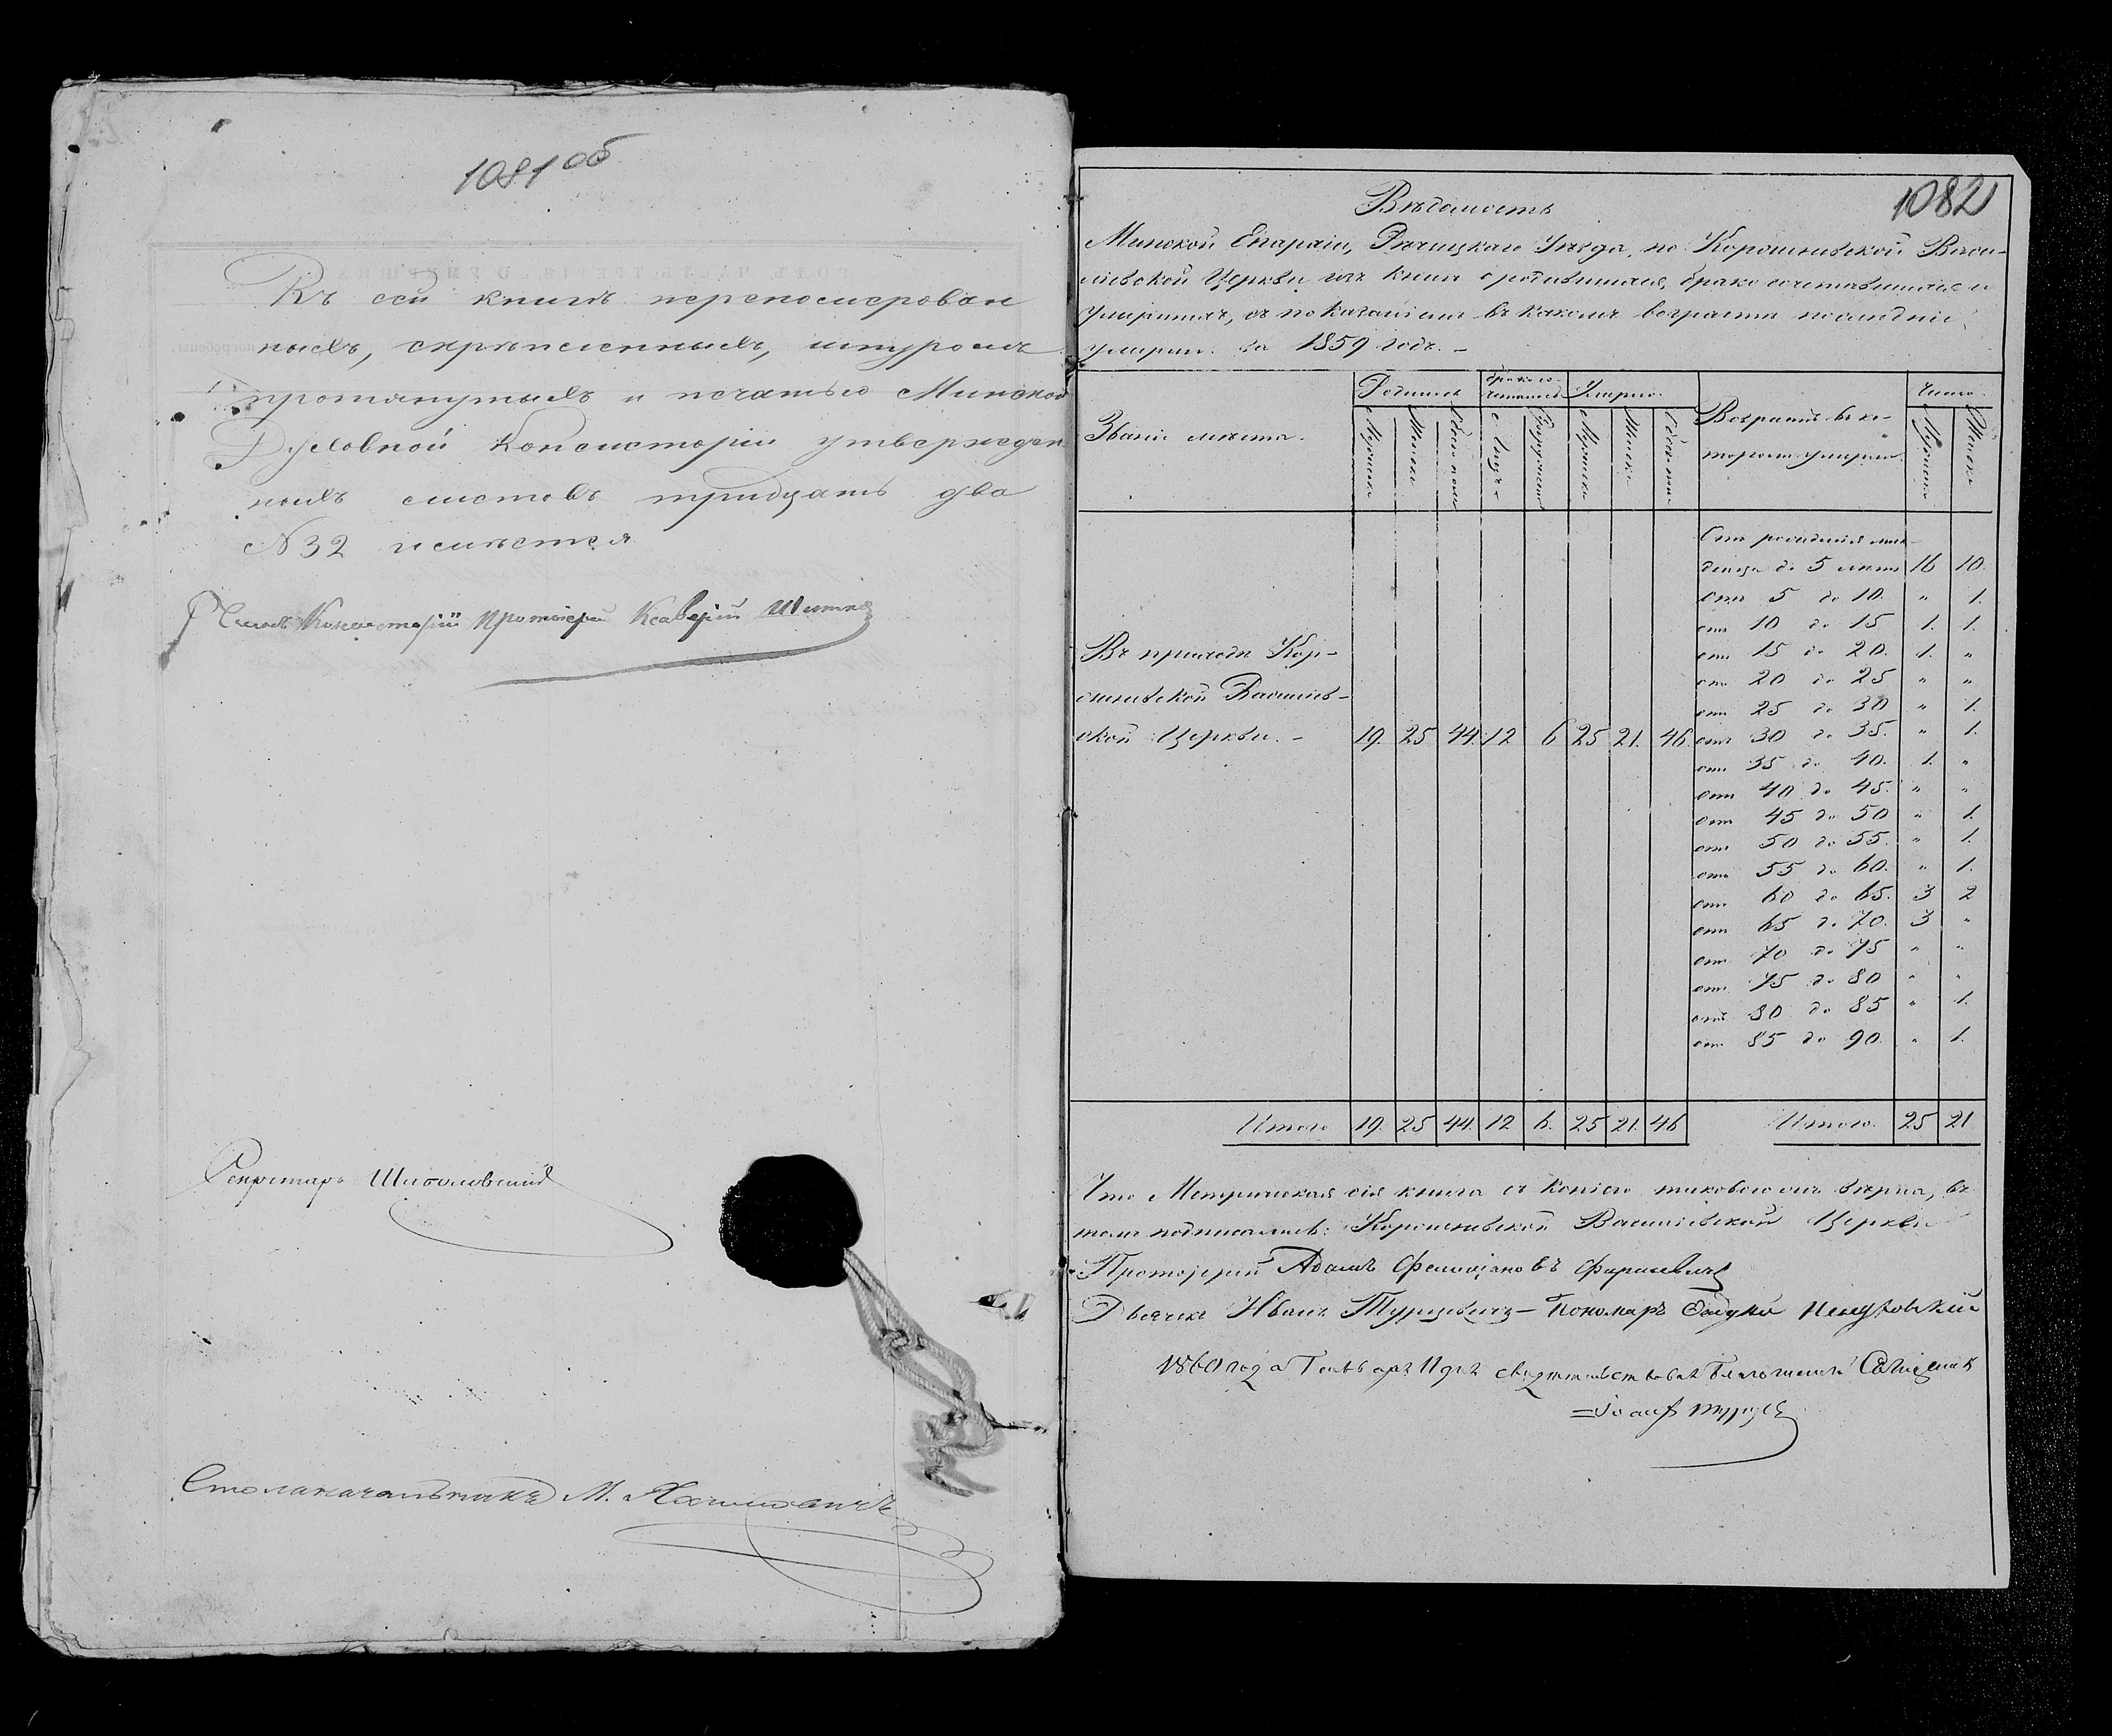 1081 об
Въ сей книгѣ перенумерован
ныхъ, скрѣпленныхъ, шнуромъ
протянутыхъ и печатью Минской
Духовной Консисторіи утвержден
ныхъ листовъ тридцать два
№ 32 имѣется
Членъ Консисторіи Протоіерей Ксаверій
Секретарь
Столоначальникъ М.
1082
Вѣдомость
Минской Епархіи, Рѣчицкаго Уѣзда, по Васи-
лiевской Церкви изъ книги о родившихся, бракосочетавшихся и
умершихъ, съ показаніемъ въ какомъ возрастѣ послѣдніе
умерли. за 1859 годъ. –
Званіе мѣста.
Родились
Мужеска
Женска
Обоего пола
Бракосо-
четались
Умерло.
Мужеска
Женска
Обоего пола
Возрастъ въ ко-
торомъ умерли
Число.
Мужеска
Женска
Отъ рожденія мла-
денца до 5 лѣтъ 16 10.
отъ 5 до 10. " 1.
отъ 10 до 15 1. 1.
отъ 15 до 20. 1. "
отъ 20 до 25 " "
отъ 25 до 30 " 1.
отъ 30 до 35. " 1.
отъ 35 до 40. 1. "
отъ 40 до 45. " "
отъ 45 до 50 " 1.
отъ 50 до 55. " 1.
отъ 55 до 60. " 1.
отъ 60 до 65. 3 2
отъ 65 до 70. 3 "
отъ 70 до 75 " "
отъ 75 до 80 " "
отъ 80 до 85 " 1.
отъ 85 до 90. " 1.
Въ приходѣ
Василіев-
ской Церкви. – 19. 25 44. 12 6 25 21. 46.
Итого 19. 25 44. 12 6. 25 21. 46 Итого. 25 21
Что Метрическая сія книга съ копіею таковою вѣрна, въ
томъ подписались: Василіевской Церкви
Протоіерей Адамъ
Дьячекъ Иванъ Турцевичъ – Пономарь
1860 года Генваря 11 дня свидѣтельствовалъ Благочинный Священникъ